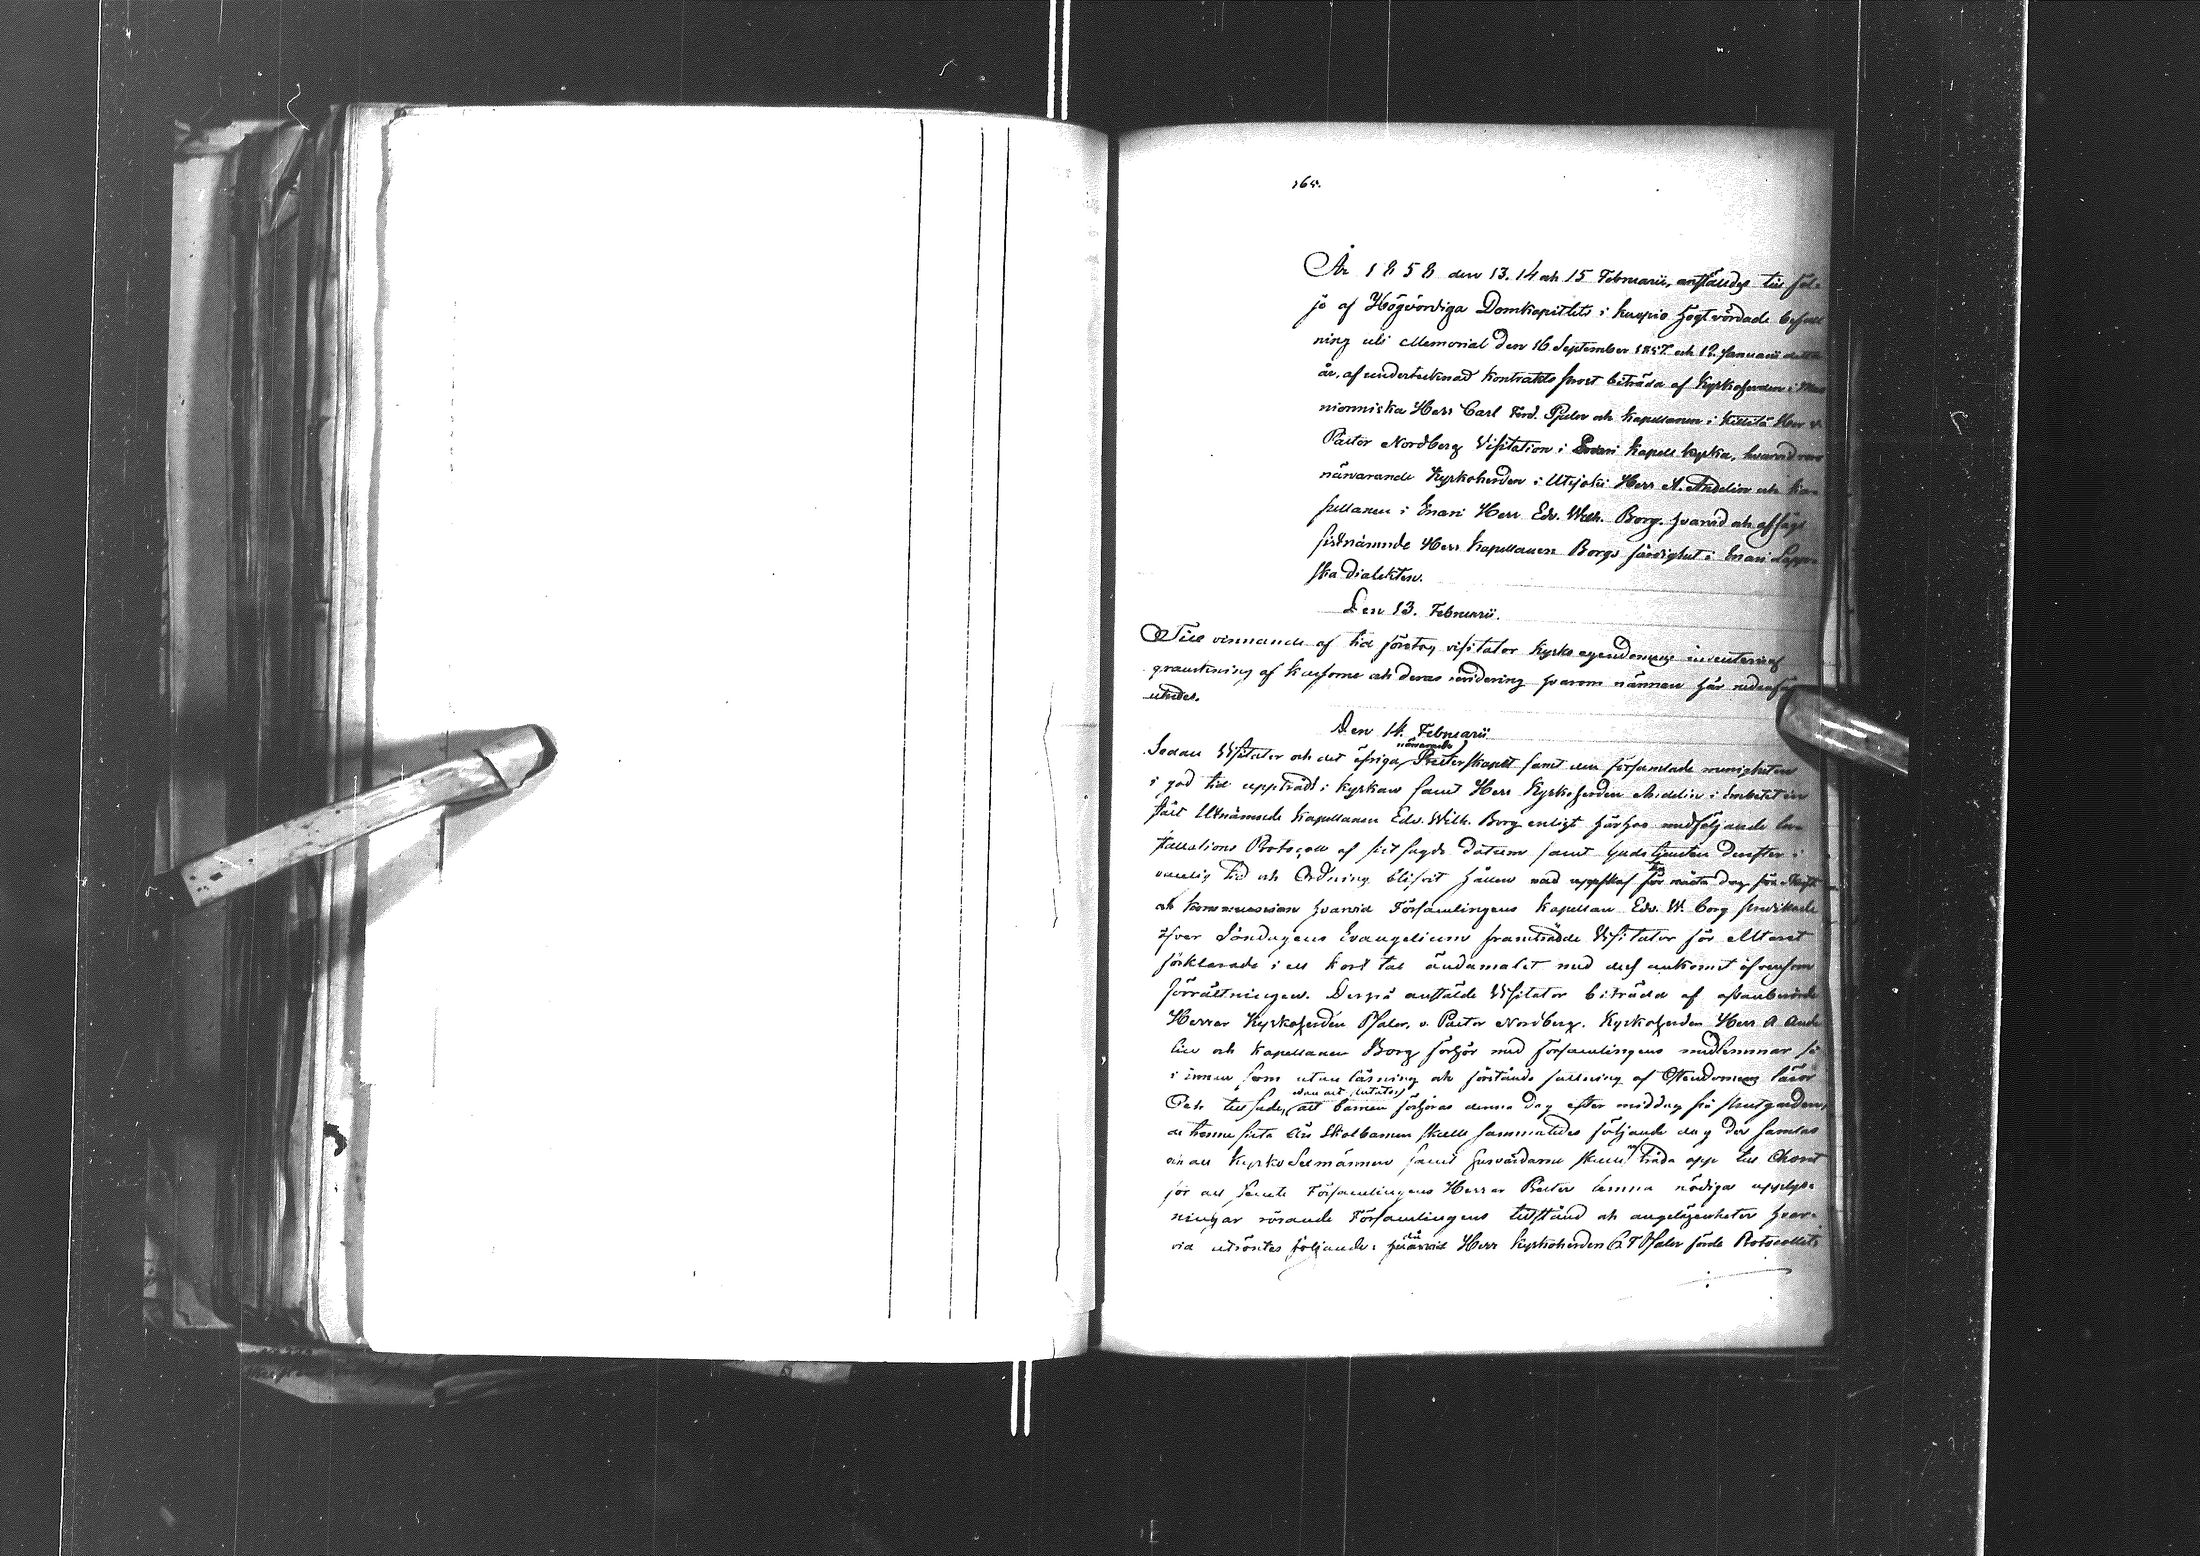 165.
År 1858 den 13. 14 och 15 Februarii, anställdes till föl-
je af Högvördiga Domkapitlets i Kuopio högtvördade befall
ning uti Memorial den 16 September 1857 och 12 Januarii detta
år, af undertecknad Kontrakts Prost biträdd af Kyrkoherden i Muo
nionniska Herr Carl Ferd. Pfaler och Kapellanen i Kittilä Herr v.
Pastor Nordberg Visitation i Enari Kapells kyrka, hvarvid voro
närvarande Kyrkoherden i Utsjoki Herr A. Andelin och Ka-
pellanen i Enari Herr Edv. Wilh. Borg. hvarvid och
sistnämnde Herr Kapellanen Borgs färdighet i Enari Lapp-
ska dialekten.
Den 13. Februarii.
Till vinnande af tid företog visitator Kyrko egendomens
granskning af Kassorne och deras hvarom nämnes här
Den 14. Februarii
Sedan Visitator och det öfriga närvarande Presterskapet samt den församlade menigheten
i god tid uppträdt i kyrkan samt Herr Kyrkoherden Andelin i Embetet in
stält Utnämnde Kapellanen Edv. Wilh. Borg enligt härhos medföljande In-
stallations Protocoll af sistsagde datum samt Gudstjensten derefter i
vanlig tid och Ordning blifvit hållen med uppskof till nästa dag för Skrift
och kommunion hvarvid Församlingens Kapellan Edv. W. Borg predikade
öfver Söndagens Evangelium framträdde Visitator för Altaret
förklarade i ett kort tal ändamålet med dess ankomst äfvensom
förrättningen. Derpå anstälde Visitator biträdd af ofvanberörde
Herrar Kyrkoherden Pfaler, v. Pastor Nordberg, Kyrkoherden Herr A Ande
lin och Kapellanen Borg förhör med församlingens medlemmar så
i innan som utan läsning och förstånd af Christendomens läror
Och tillsades, att barnen förhöras denna dag efter middag på Prestgården,
de Skolbarnen skulle sammaledes följande dag der samlas
och att Kyrko Sexmännen samt husvärdarne skulle träda opp till Choret
för att jemte Församlingens Herrar Prester lemna nödiga upplys-
ningar rörande Församlingens tillstånd och angelägenheter hvar-
vid utröntes följande: då Herr Kyrkoherden C. F. Pfaler förde Protocollet: